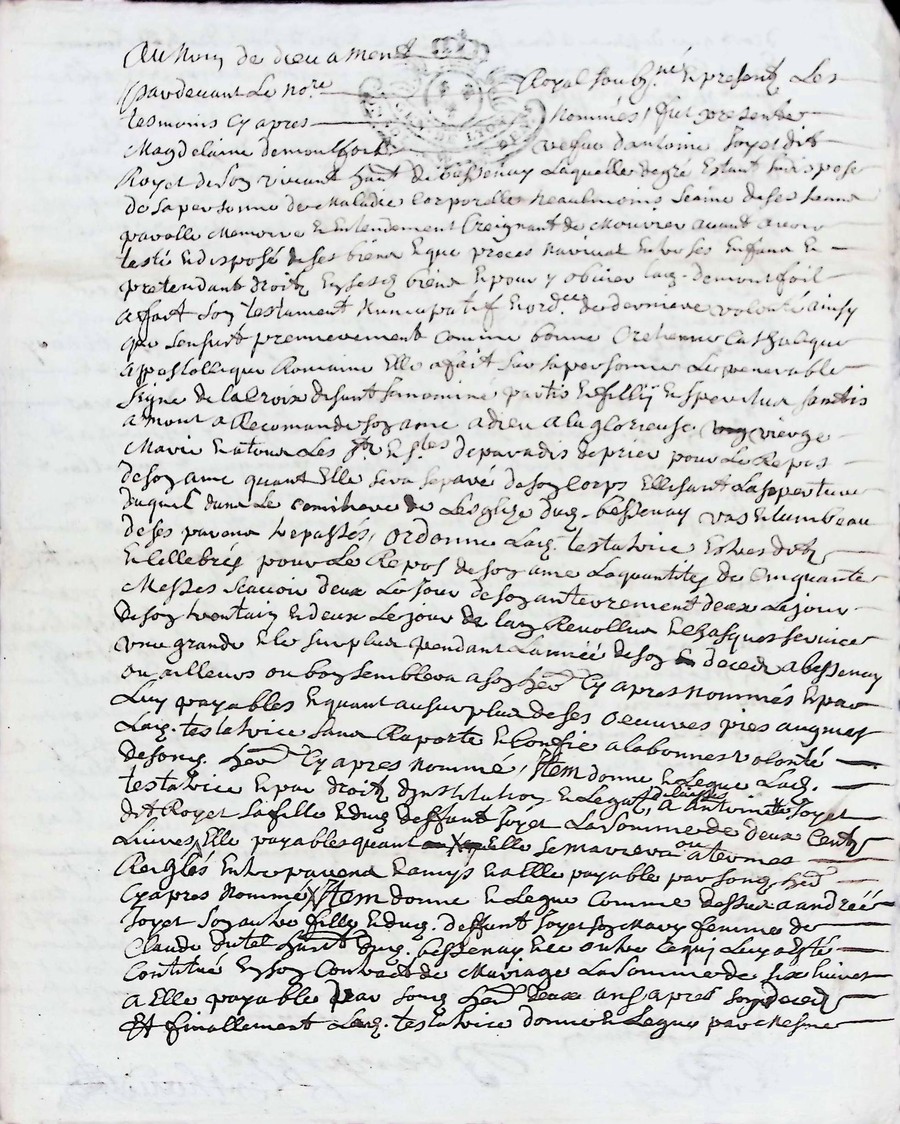 Au Nom de dieu amen
pardevant Le no.re Royal soub.né En present Les
tesmoins Cy apres Nommés fut presente
Magdelaine demontfoil vefue dantoine Joyet dit
Royet de Son vivant hant. de bessenay Laquelle de gré Estant indisposé
de sa personne de Maladie Corporelle Neaulmoins Seaine de ses sens
parolle Memoire Et Entendement Creignant de Mourir avant avoir
testé Et disposé de ses biens Et que proces Naivint Entre ses Enfans Et
pretendants droits En sesd. biens Et pour y obvier lad. demontfoil
a fait Son testament Nuncupatif Et ord.ce de derniere volonté ainsy
que sensuit premierement comme bonne Cretienne Catholique
apostollique Romaine Elle a fait sur sa personne Le venerable
signe de la Croix disant In nomine patris Et fillÿ Et speritus santis
amen a Recomandé son ame a dieu a la glorieuse vierge
Marie Et a tous Les sts Et stes de paradis de prier pour Le Repos
de son ame quant Elle sera separé de son Corps Ellisant La seperture
duquel dans Le Cemitiere de Lesglize dud. bessenay vas Et tumbeau
de ses parens trepassés, ordonne Lad. testatrice Estres dites
Et Cellebrés pour Le Repos de son ame La quantités de Cinquante
Messes scavoir deux Le Jour de son anterrement deux Le jour
de son trentain Et deux Le jour de lan Revollu Et Chasques service
une grande Et le surplus pendant Lannée de son deced a bessenay
ou ailleurs ou bon semblera a son her. Cy apres nommés Et par
Luy payables Et quant au surplus de ses oeuvres pies aug.
Lad. testatrice sans Raporte Et Confie a la bonnes volonté
de sond. her. Cy apres nommé, Item donne Et Legue Lad.
testatrice Et par droit dinstitution Et Legat a Antoinette Joyet
dit Royet sa fille Et dud. deffant Joyet La somme de deux Cents
Livres a Elle payables quant Elle se mariera ou a termes
Reiglés Entre parens Et amys Et a Elle payable par sond. her.
Cy apres nommé X Item donne Et Legue Comme dessus a andreé
Joyet Son autre fille Et dud. deffant Joyet son mary femme de
Claude dutel hant. dud. bessenay Et ce outre Ce qui Luy a Esté
Constitué En son Contract de Mariage La somme de six livres
a Elle payable par sond. her. deux ans apres son deced
Et finallement Lad. testatrice donne Et Legue par Mesme